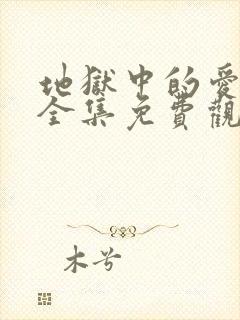 地獄中的愛
全集免費觀
木兮